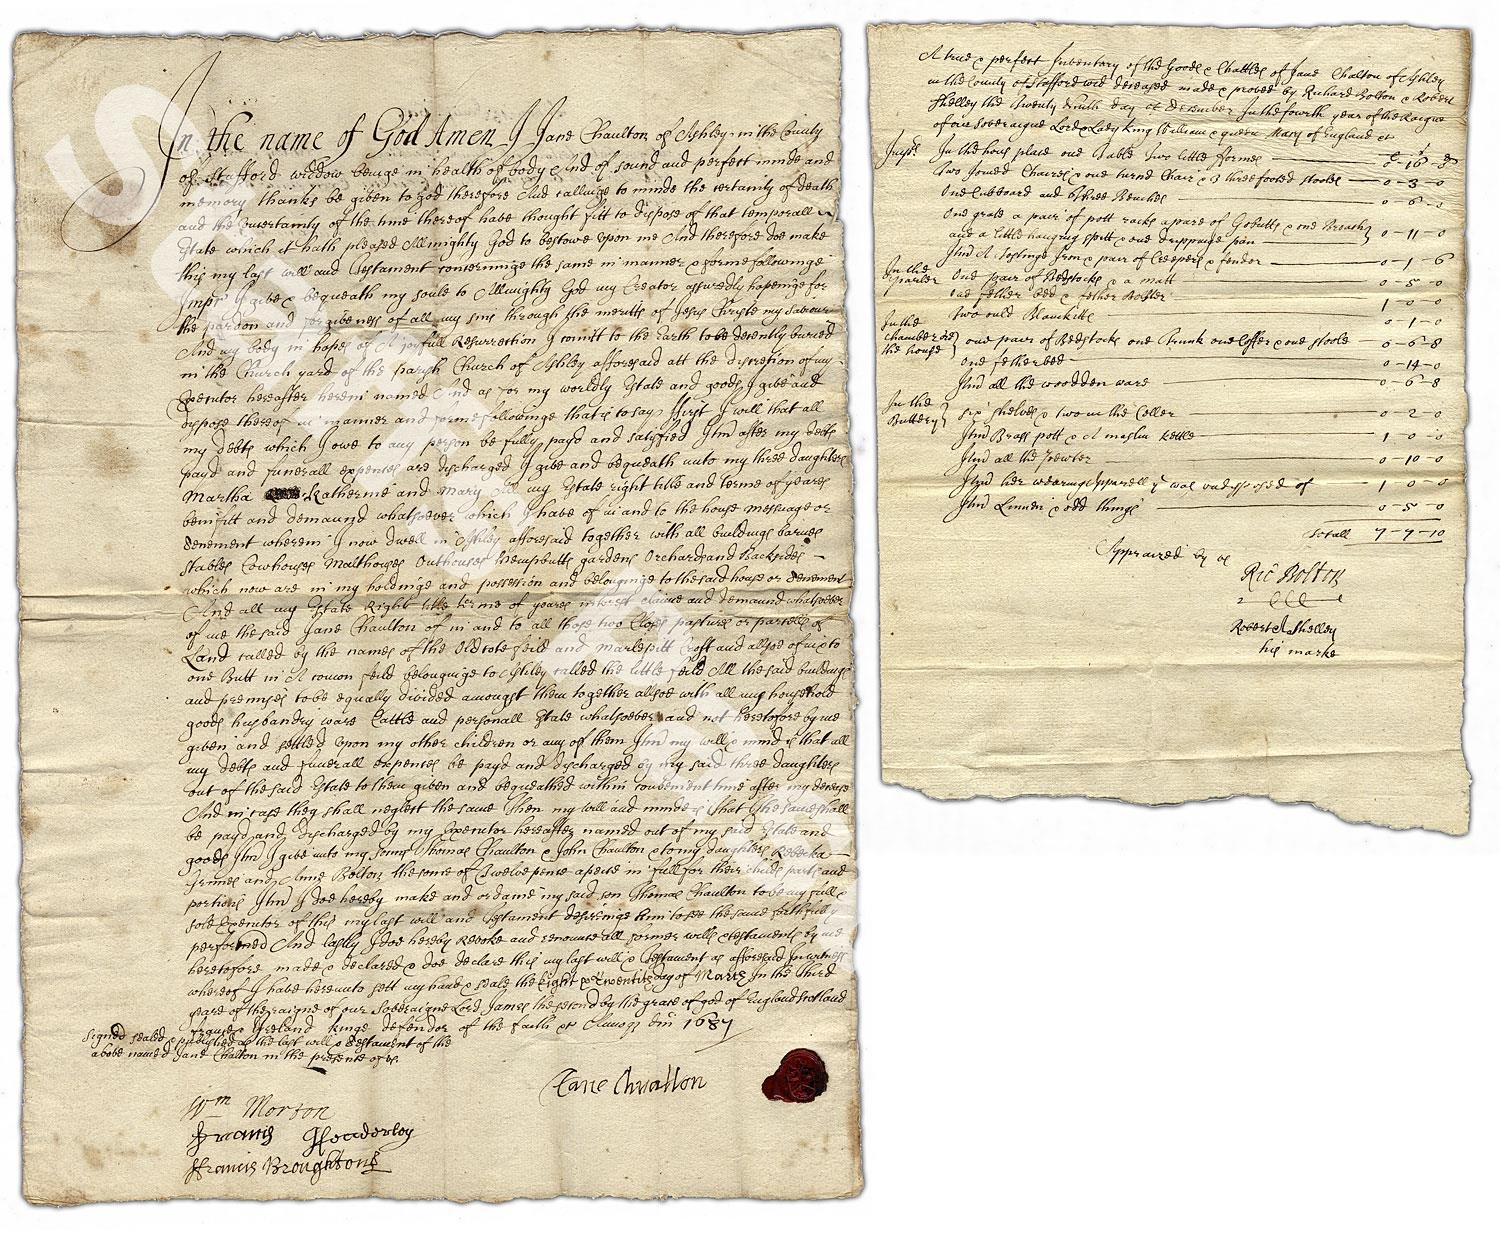 In the name of God Amen I Jane Chaulton of Ashley in the County
of Stafford widdow beinge in health of body And of sound and perfect minde and
memory thanks be given to god therefore And callinge to minde the certainty of death
and the uncertainty of the time thereof have thought fitt to dispose of that temporall
Estate which it hath pleased Allmighty God to bestowe upon me And therefore doe make
this my last will and Testament concerninge the same in manner & forme followinge
Imprs I give & bequeath my soule to Allmighty God my Creator assuredly hopeinge for
the pardon and forgiveness of all my sins through the meritts of Jesus Christe my Saviour
And my body in hopes of A joyfull Resurrection I comitt to the Earth to be decently buried
in the Church yard of the parish Church of Ashley aforesaid att the discretion of my
Executor hereafter herein named And as for my worldly Estate and goods I give and
dispose thereof in manner and forme followinge that is to say ffirst I will that all
my debts which I owe to any person be fully payd and satisfied Itm after my debts
payd and funerall expenses are discharged I give and bequeath unto my three daughters
Martha Katherine and Mary All my Estate right title and terme of yeares
benifitt and demaund whatsoever which I have of in and to the house messuage or
Tenement wherein I now dwell in Ashley aforesaid together with all buildings barnes
Stables Cowhouses Malthouses Outhouses Hempbutts gardens Orchards and Backsides
which now are in my holdinge and possession and belonginge to the said house or Tenement
And all my Estate Right title terme of yeares interest claime and demaund whatsoever
of me the said Jane Chaulton of in and to all those two Closes pastures or parcells of
Land called by the names of the Old cote feild and Marlepitt Croft and allsoe of in & to
one Butt in A comon feild belonginge to Ashley called the little feild All the said buildings
and premises to be equally divided amongst them together allsoe with all my household
goods husbandry ware Cattle and personall Estate whatsoever and not heretofore by me
given and settled upon my other children or any of them Itm my will & mind is that all
my debts and funerall expenses be payd and discharged by my said three daughters
out of the said Estate to them given and bequeathed within convenient time after my decease
And in case they shall neglect the same Then my will and minde is that the same shall
be payd and discharged by my Executor hereafter named out of my said Estate and
goods Itm I give unto my sonns Thomas Chaulton & John Chaulton & to my daughters Rebecka
and Anne Bolton the some of Twelve pence apeece in full for their childs parts and
portions Itm I doe hereby make and ordaine my said son Thomas Chaulton to be my full &
sole Executor of this my last will and Testament desireinge him to see the same faithfully
performed And lastly I doe hereby Revoke and renounce all former wills & testaments by me
heretofore made & declared & doe declare this my last will & Testament as aforesaid In witness
whereof I have hereunto sett my hand & seale the Eight & Twentith day of March In the Third
yeare of the raigne of our Soveraigne Lord James the second by the grace of god of England Scotland
france & Ireland kinge defendor of the faith &c Annoq Dm 1687
Signed sealed & published as the last will & Testament of the
above named Jane Chalton in the presence of us
Jane Chaulton
Wm Morton
Francis
Francis Broughton
A true & perfect Inventory of the Goods & Chattles of Jane Chalton of Ashley
in the County of Stafford wid deceased made & proved by Richard Bolton & Robert
Shelley the Twenty day of December In the fourth year of the Raigne
of our Soveraigne Lord & Lady King William & queen Mary of England &c
Imprs In the hous place one Table two little formes 0-16-8
Two Joined Chaires & one turnd Chair & 3 three footed stooles 0-3-0
One Cubboard and Three Benches 0-6-0
One grate a pair of pott racks a paire of Gobutts & one Broach
and a little hanging spitt & one drippinge pan 0-11-0
Itm A Iron & pair of Creepers & fender 0-1-6
In the parler One pair of Bedstocks & a matt 0-5-0
one fether bed & fether Bolster 1-0-0
two ould Blanckitts 0-1-0
In the chamber over the house one pair of Bedstocks one Trunk one Coffer & one stoole 0-6-8
one fether bed 0-14-0
Itm all the woodden ware 0-6-8
In the Buttery six shelves & two in the Celler 0-2-0
Itm Brass pott & A maslin kettle 1-0-0
Itm all the Pewter 0-10-0
Itm her wearing Apparell yt was undisposed of 1-0-0
Itm Linnen & odd things 0-5-0
Totall 7-7-10
Appraized by us
Ric Bolton
Robert Shelley
his marke